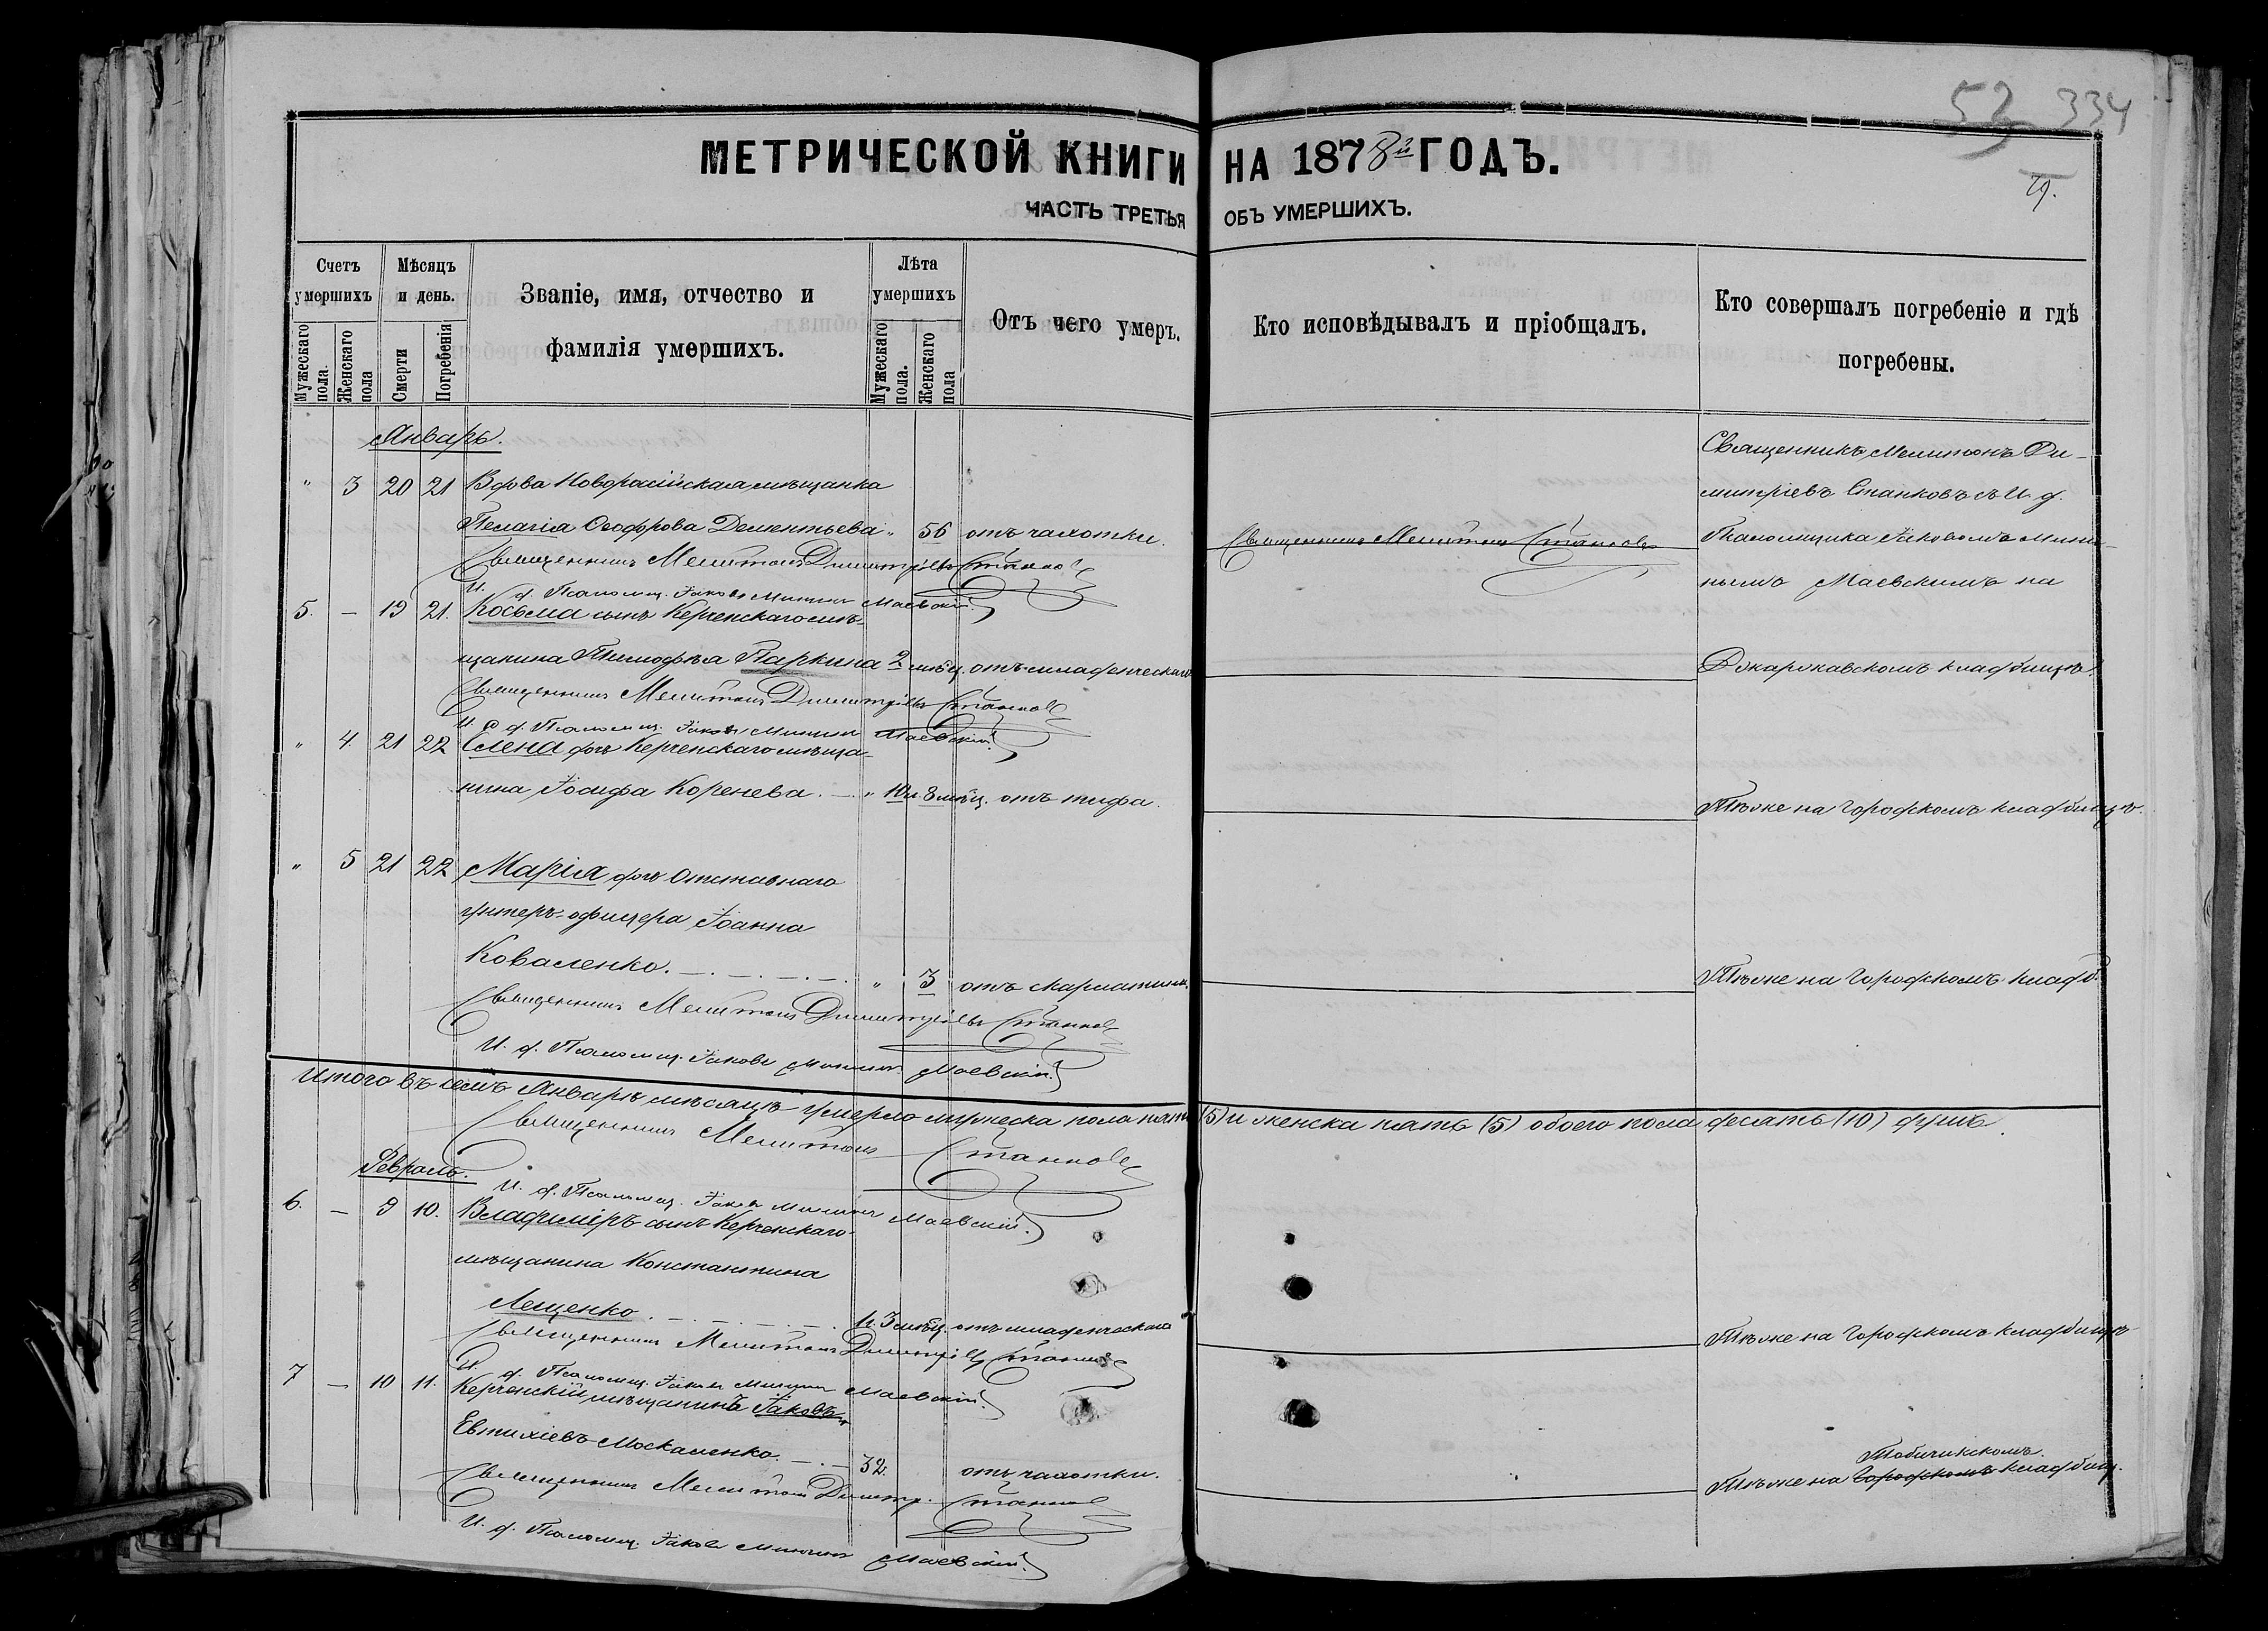 53 334
79.
МЕТРИЧЕСКОЙ КНИГИ НА 1878й ГОДЪ.
ЧАСТЬ ТРЕТЬЯ ОБЪ УМЕРШИХЪ.
Счетъ умершихъ
Мужескаго пола.
Женскаго пола
Мѣсяцъ и день.
Смерти
Погребенія
Званіе, имя, отчество и фамилія умершихъ.
Лѣта умершихъ
Мужескаго пола.
Женскаго пола
Отъ чего умеръ.
Кто исповѣдывалъ и пріобщалъ.
Кто совершалъ погребеніе и гдѣ погребены.
Январь.
" 3 20 21 Вдова Новоросійская мѣщанка
Пелагія Ѳеодорова Дементьева " 56 отъ чахотки. Священникъ Мелитонъ Станковъ
Священникъ Мелитонъ Димитріевъ Станковъ
И. д. Псаломщ. Іаковъ Мининъ Маевскій.
Священникъ Мелитонъ Ди-
митріевъ Станковъ съ И. д.
Псаломщика Іаковомъ Мини-
нымъ Маевскимъ на
5. — 19 21. Косьма сынъ Керченскаго мѣ-
щанина Тимофѣя Паркина 2 мѣц. отъ младенческаго кладбищѣ.
Священникъ Мелитонъ Димитріевъ Станковъ
И. д. Псаломщ. Іаковъ Мининъ Маевскій.
" 4 21 22 Елена дочь Керченскаго мѣща-
нина Іосифа Коренева. — " 10 и 8 мѣц. отъ тифа. Тѣже на Городскомъ кладбищѣ.
" 5 21 22 Марія дочь Отставнаго
унтеръ-офицера Іоанна
Коваленко. — " 3 отъ скарлатины. Тѣже на Городскомъ кладб.
Священникъ Мелитонъ Димитріевъ Станковъ
И. д. Псаломщ. Іаковъ Мининъ Маевскій.
Итого въ семъ Январѣ мѣсяцѣ умерло мужеска пола пять (5) и женска пять (5) обоего пола десять (10) душъ.
Священникъ Мелитонъ Станковъ
И. д. Псаломщ. Іаковъ Мининъ Маевскій.
Февраль.
6. — 9 10. Владиміръ сынъ Керченскаго
мѣщанина Константина
Лещенко. 3 мѣц. отъ младенческаго Тѣже на Городскомъ кладбищѣ
Священникъ Мелитонъ Димитріевъ Станковъ
И. д. Псаломщ. Іаковъ Мининъ Маевскій.
7 — 10 11. Керченскій мѣщанинъ Іаковъ
Евтихіевъ Москаленко. — 32. отъ чахотки.
Тобичикскомъ.
Тѣже на Городскомъ кладбищ.
Священникъ Мелитонъ Димитр. Станковъ
И. д. Псаломщ. Іаковъ Мининъ Маевскій.